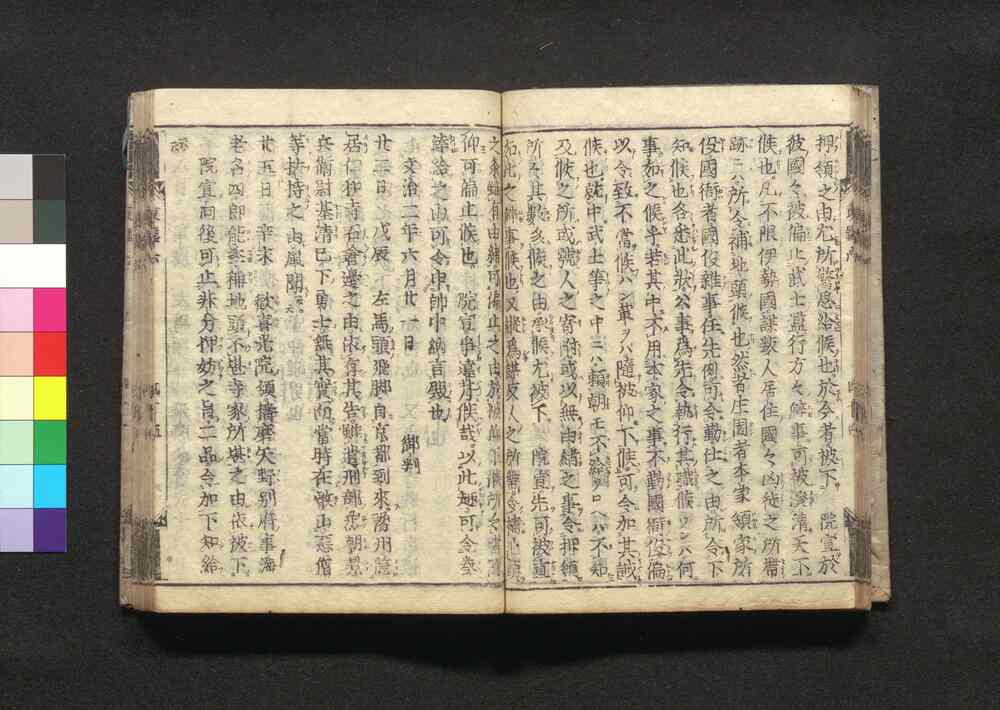 押領之由尤所驚思給候也於今者被下 院宣於
彼國々被偏止武士濫行方々僻事可被澄清天下
候也凡不限伊勢國謀叛人居住國々凶徒之所帶
跡ニハ所令補地頭候也然者庄園者本家領家所
役國衙者國役雜事任先例可令勤仕之由所令下
知候也各悉此狀公事爲先令執行其職候ハンハ何
事如之候乎若其中不用本家之事不勤國衙役偏
以令致不當候ハン輩ヲハ隨被仰下候可令加其誡
候也就中武士等之中ニハ賴朝モ不給候ヘハ不知
及候之所或號人之寄附或以無由緒之事令押領
所々其數多候之由承候尤被下 院宣先可被直
如此之僻事候也又縱爲謀反人之所帶令補地頭
之條雖有由緒可停止之由於被仰下候所々者
仰可偏止候也 院宣爭違背候哉以此趣可令奏
達給之由可令申帥中納言殿也
文治二年六月廿一日 御判
廿二日 戊辰 左馬頭飛脚自京都到來豫州隱
居仁和寺石倉邊之由依有其告雖遣刑部丞朝景
兵衛尉基清已下勇士無其實而當時在叡山惡僧
等扶持之由風聞云々
廿五日 辛未 歡喜光院領播磨矢野別府事海
老名四郎能季補地頭不堪寺家所堪之由依被下
院宣向後可止非分仰妨之旨二品令加下知給
云々